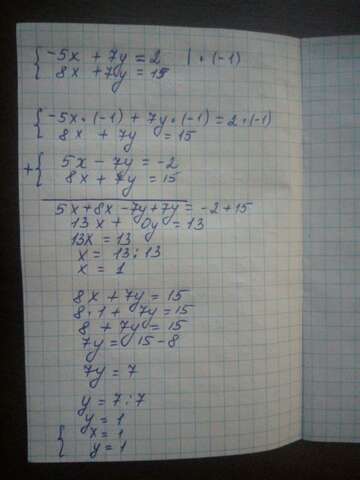 { -5x + 7y = 2 | · (-1)
8x + 7y = 15
{ -5x · (-1) + 7y · (-1) = 2 · (-1)
8x + 7y = 15
+ { 5x - 7y = -2
8x + 7y = 15
5x + 8x - 7y + 7y = -2 + 15
13x + 0y = 13
13x = 13
x = 13 : 13
x = 1
8x + 7y = 15
8 · 1 + 7y = 15
8 + 7y = 15
7y = 15 - 8
7y = 7
y = 7 : 7
y = 1
{ x = 1
y = 1